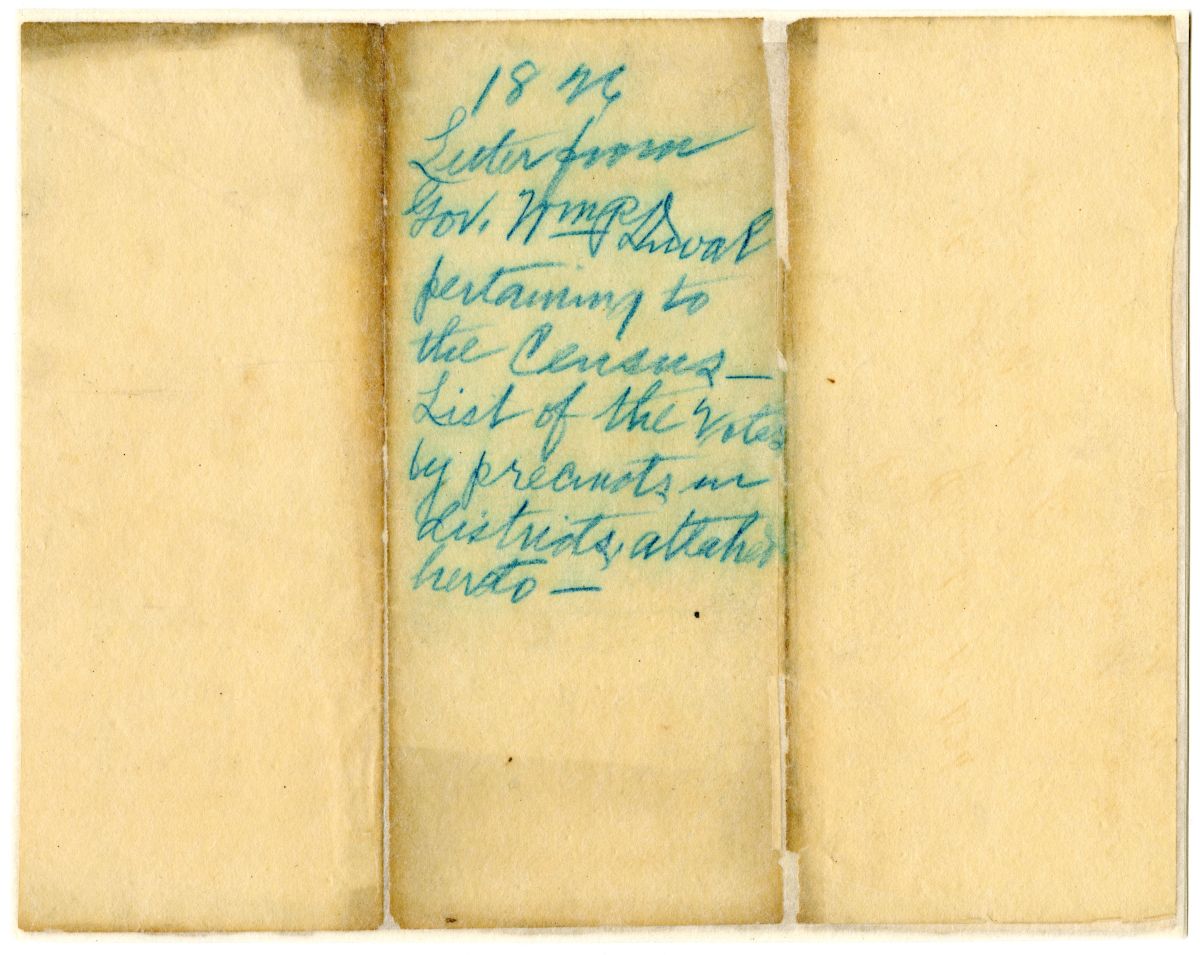 1826
Letter from
Gov. Wm P Duval
pertaining to
the Census —
List of the Votes
by precincts in
districts, attahed
hereto —